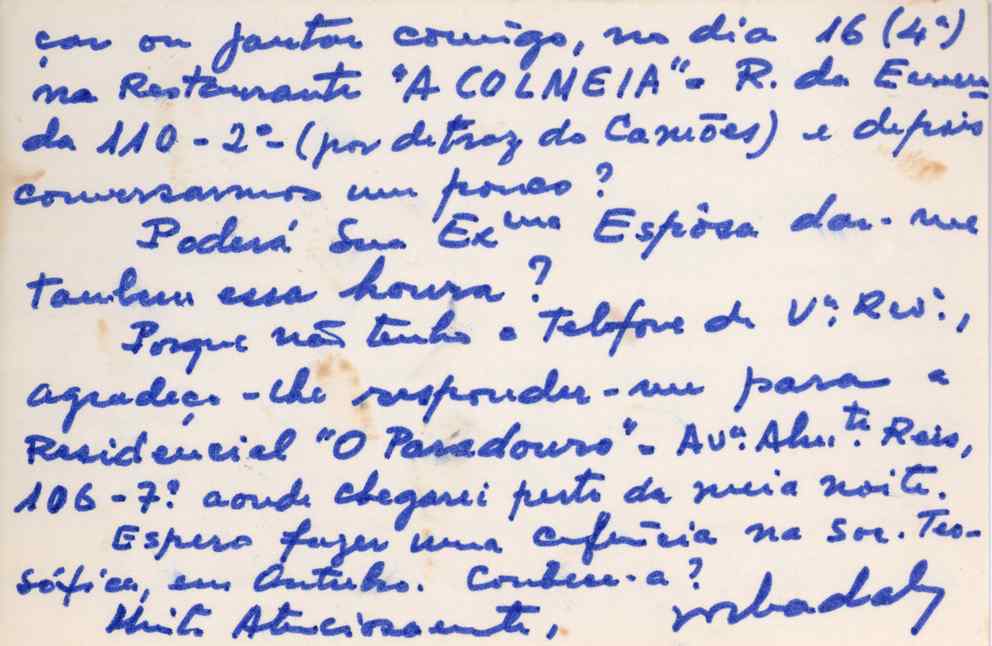 çar ou jantar comigo, no dia 16 (4ª)
na Restaurante "A COLMEIA" - R. da Emen
da 110 - 2º - (por detraz do Camões) e depois
conversarmos um pouco?
Poderá Sua Exma Espôsa dar-me
tambem essa honra?
Porque não tenho o Telefone de V.ª Rev.ª,
agradeço-lhe responder-me para a
Residencial "O Paradouro" - Avª. Almte. Reis,
106 - 7º. aonde chegarei perto da meia noite.
Espero fazer uma cuferência na Soc. Teo-
sófica, em Outubro. Conhece-a?
Muito Atenciosamente,